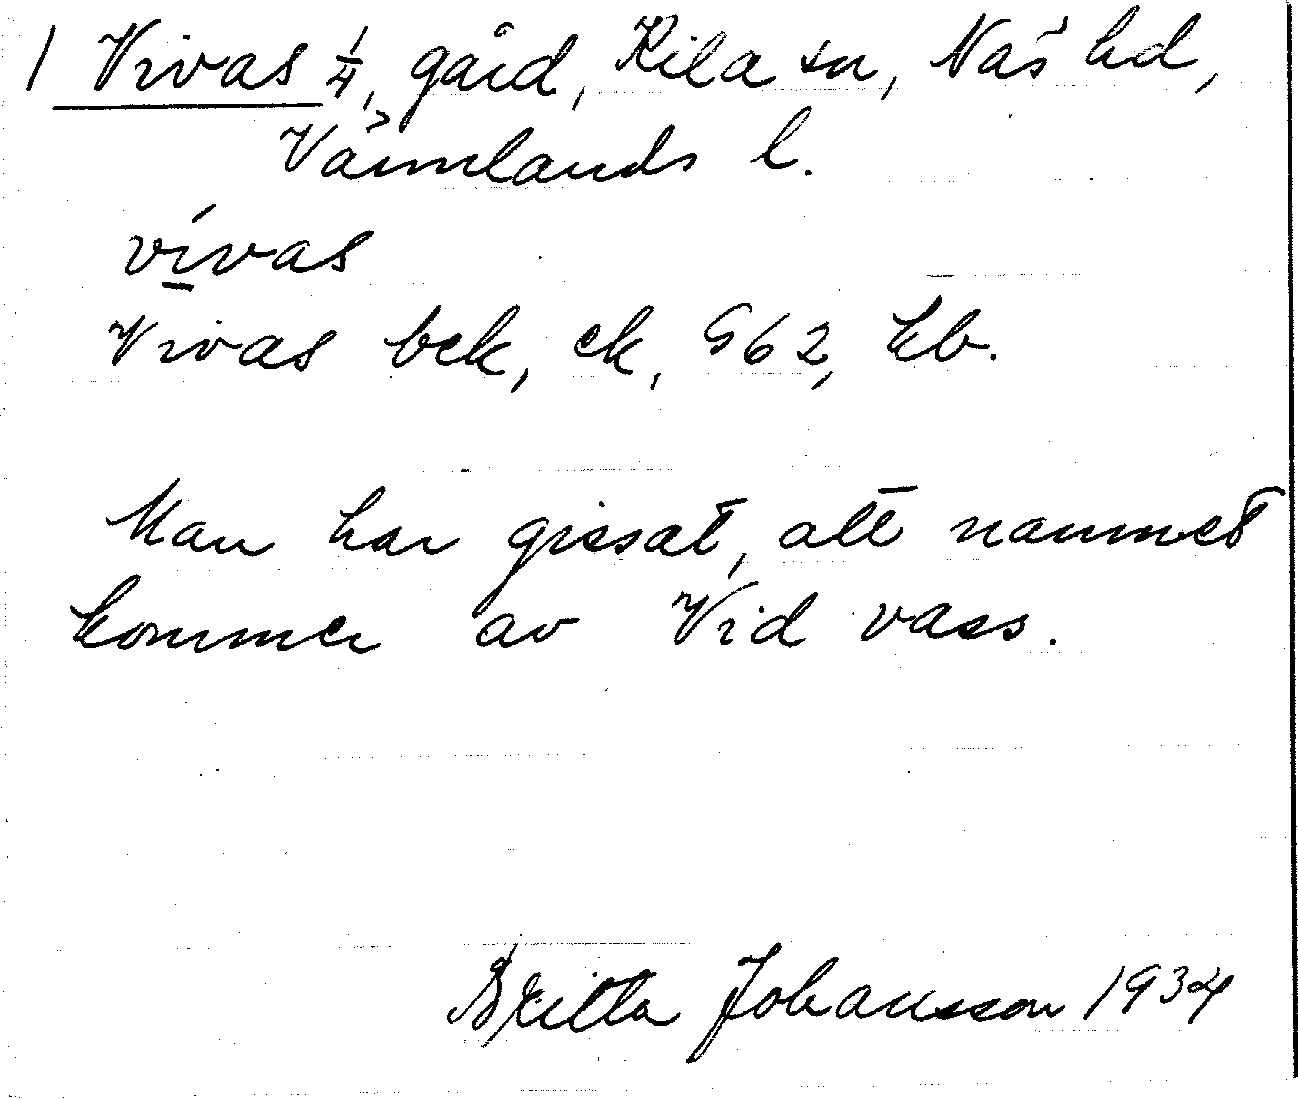 1 Vivas 1/4, gård, Kila sn, Näs hd,
Värmlands l.
vívas
Vivas bek, ek, G62, kb.
Man har gissat, att namnet
kommer av Vid vass.
Britta Johansson 1934